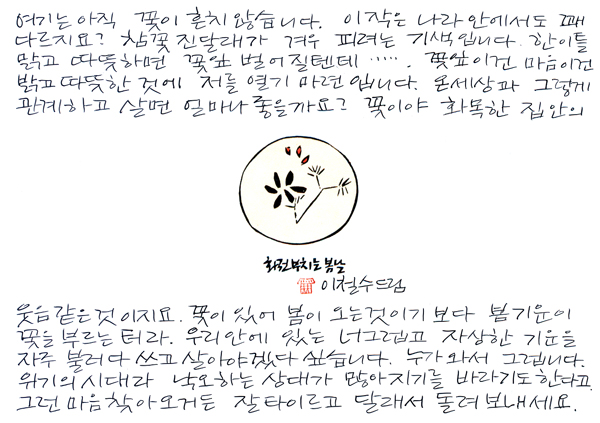 여기는 아직 꽃이 흔치 않습니다. 이 작은 나라 안에서도 꽤
다르지요? 참꽃 진달래가 겨우 피려는 기색입니다. 한 이틀
맑고 따뜻하면 꽃잎 벌어질텐데 ‥‥‥. 꽃잎이건 마음이건
밝고 따뜻한 것에 저를 열기 마련입니다. 온세상과 그렇게
관계하고 살면 얼마나 좋을까요? 꽃이야 화목한 집안의
화전 부치는 봄날
이철수 드림
웃음같은 것이지요. 꽃이 있어 봄이 오는것이기 보다 봄기운이
꽃을 부르는 터라. 우리안에 있는 너그럽고 자상한 기운을
자주 불러다 쓰고 살아야겠다 싶습니다. 누가 와서 그럽니다.
위기의 시대라 낙오하는 상대가 많아지기를 바라기도 한다고.
그런 마음 찾아오거든 잘 타이르고 달래서 돌려 보내세요.